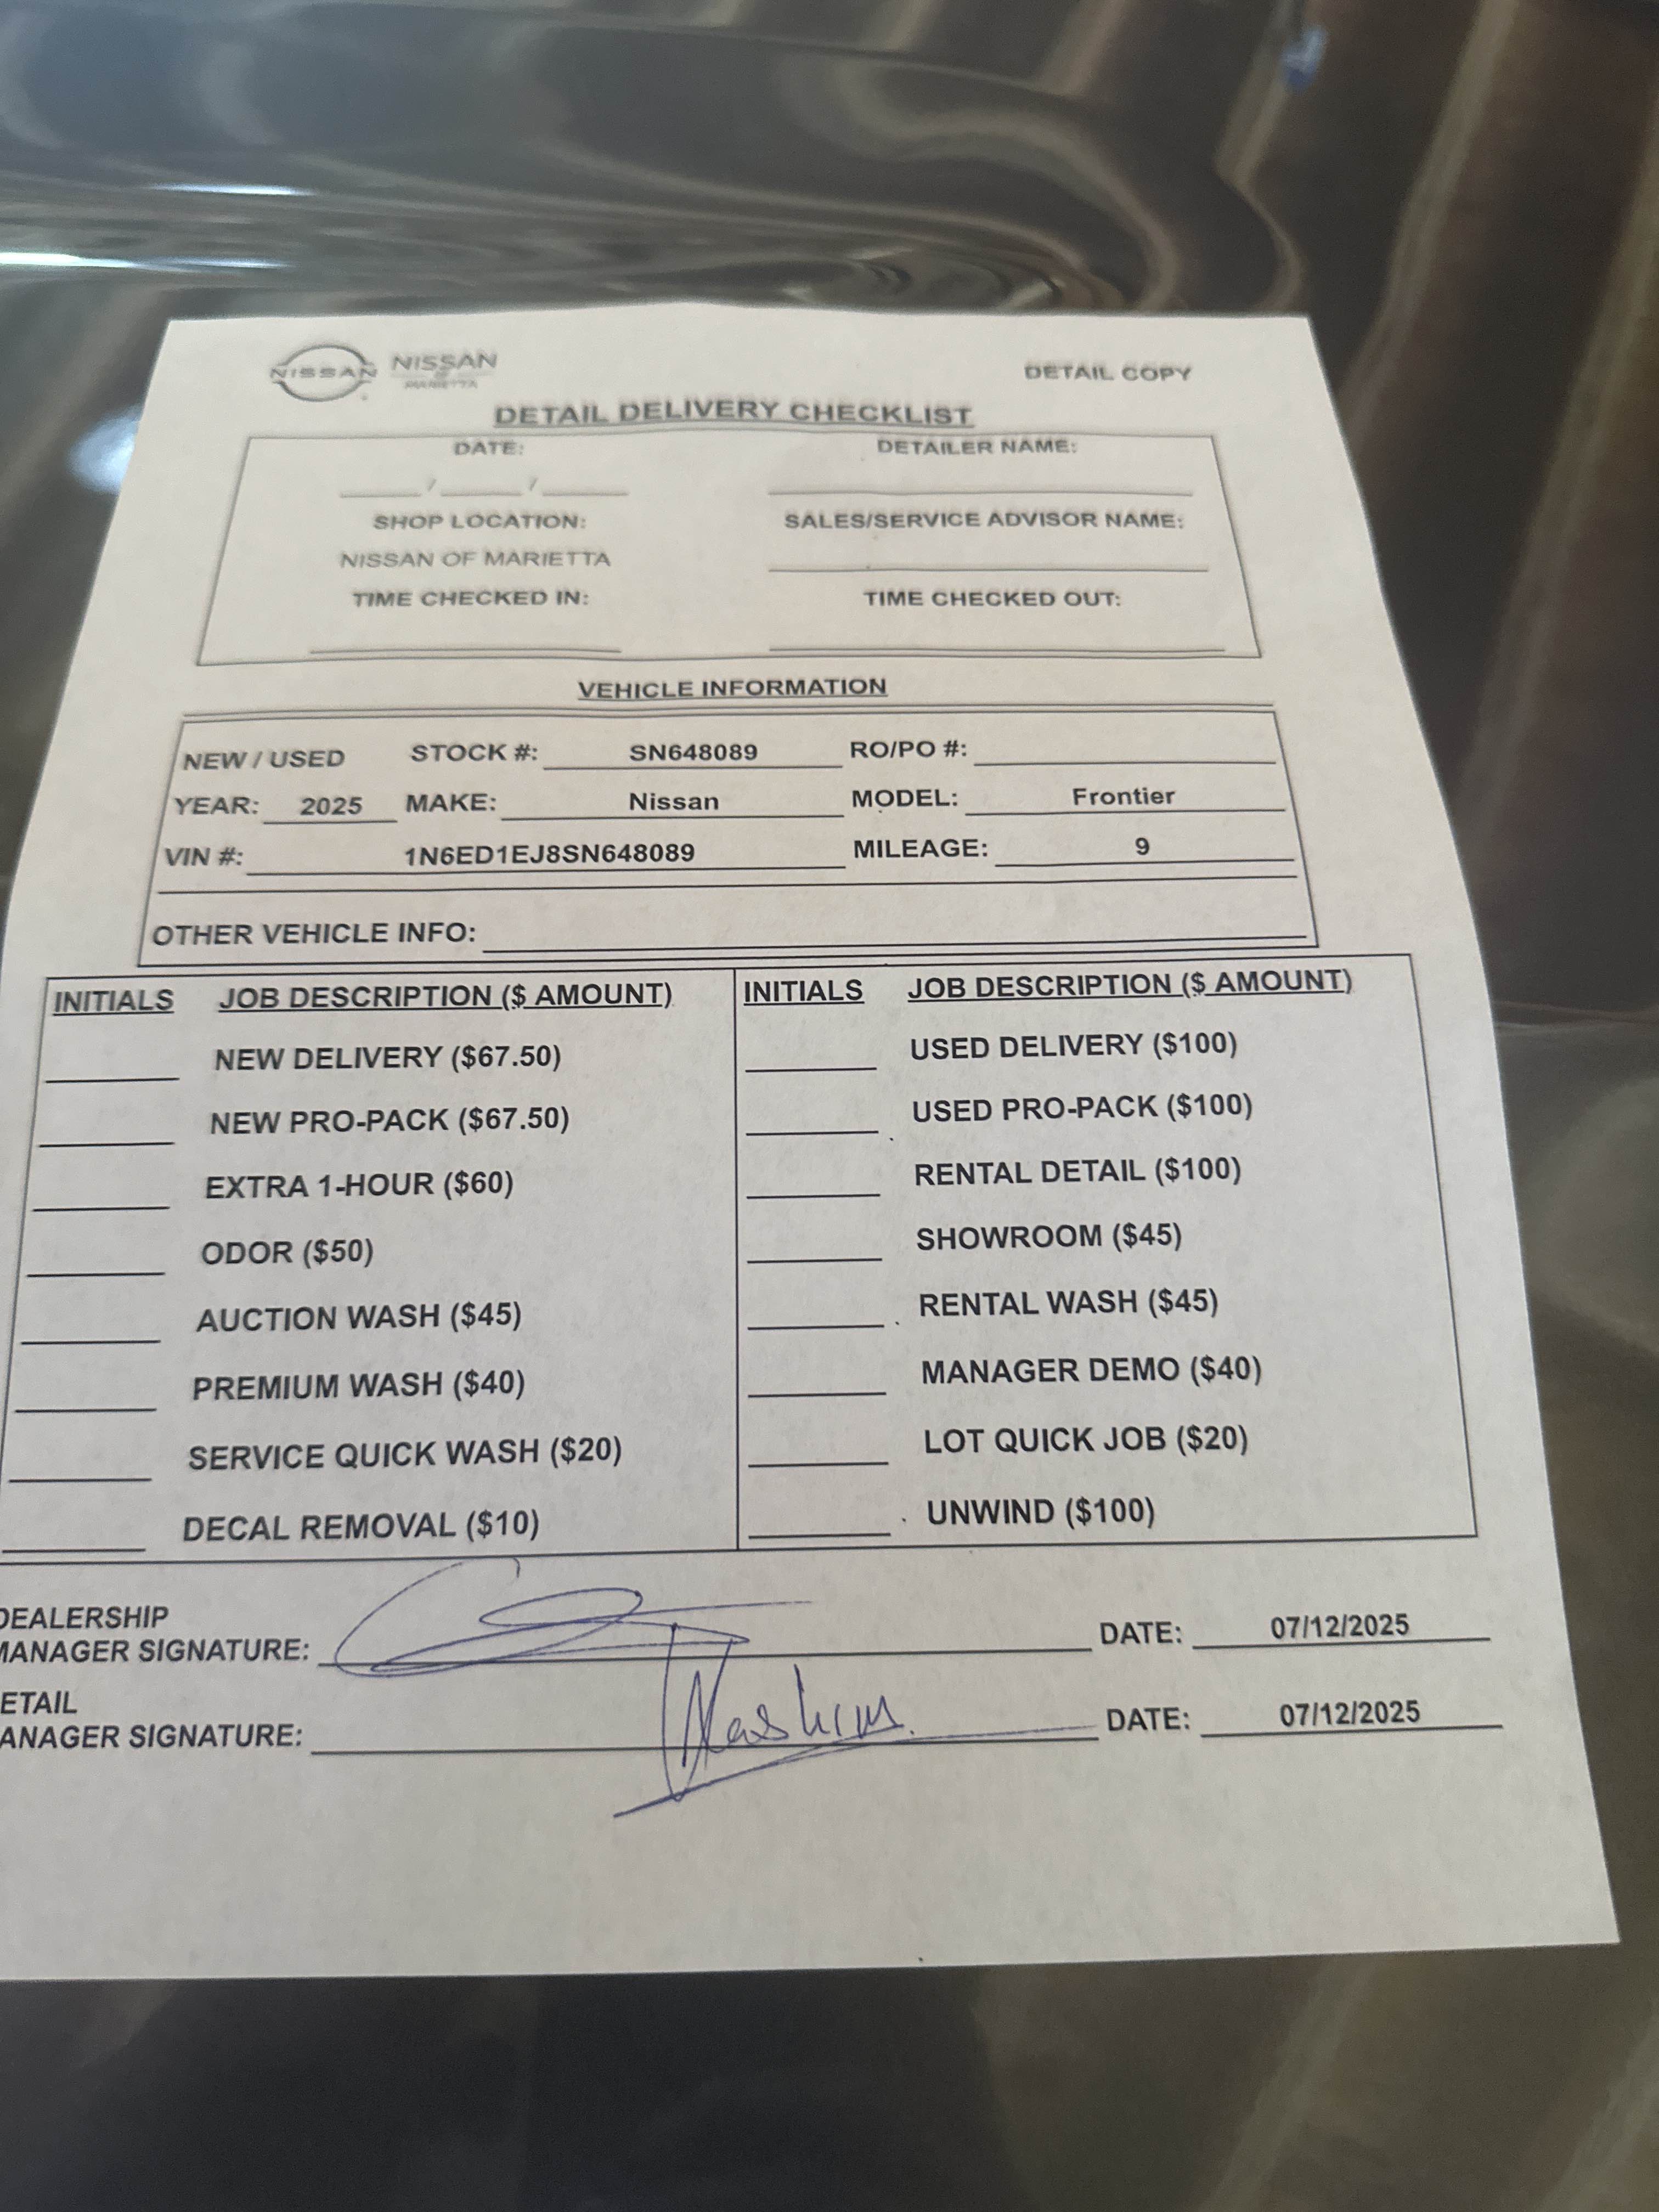 NISSAN NISSAN
OF
MARIETTA
DETAIL COPY
DETAIL DELIVERY CHECKLIST
DATE: DETAILER NAME:
____ / ____ / ____ ____
SHOP LOCATION: SALES/SERVICE ADVISOR NAME:
NISSAN OF MARIETTA
TIME CHECKED IN: TIME CHECKED OUT:
VEHICLE INFORMATION
NEW / USED STOCK #: SN648089 RO/PO #:
YEAR: 2025 MAKE: Nissan MODEL: Frontier
VIN #: 1N6ED1EJ8SN648089 MILEAGE: 9
OTHER VEHICLE INFO:
INITIALS JOB DESCRIPTION ($ AMOUNT) INITIALS JOB DESCRIPTION ($ AMOUNT)
NEW DELIVERY ($67.50) USED DELIVERY ($100)
NEW PRO-PACK ($67.50) USED PRO-PACK ($100)
EXTRA 1-HOUR ($60) RENTAL DETAIL ($100)
ODOR ($50) SHOWROOM ($45)
AUCTION WASH ($45) RENTAL WASH ($45)
PREMIUM WASH ($40) MANAGER DEMO ($40)
SERVICE QUICK WASH ($20) LOT QUICK JOB ($20)
DECAL REMOVAL ($10) UNWIND ($100)
DEALERSHIP
MANAGER SIGNATURE: DATE: 07/12/2025
ETAIL
ANAGER SIGNATURE: DATE: 07/12/2025